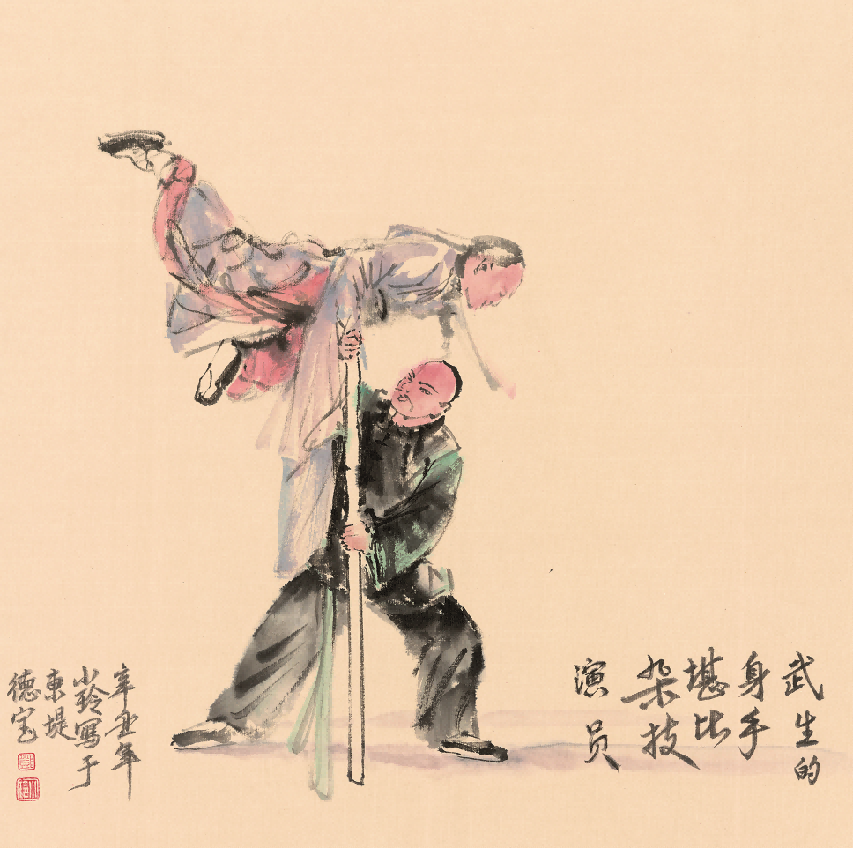 武生的
身手
堪比
杂技
演员
辛丑年
小玲写于
東堤
德宝